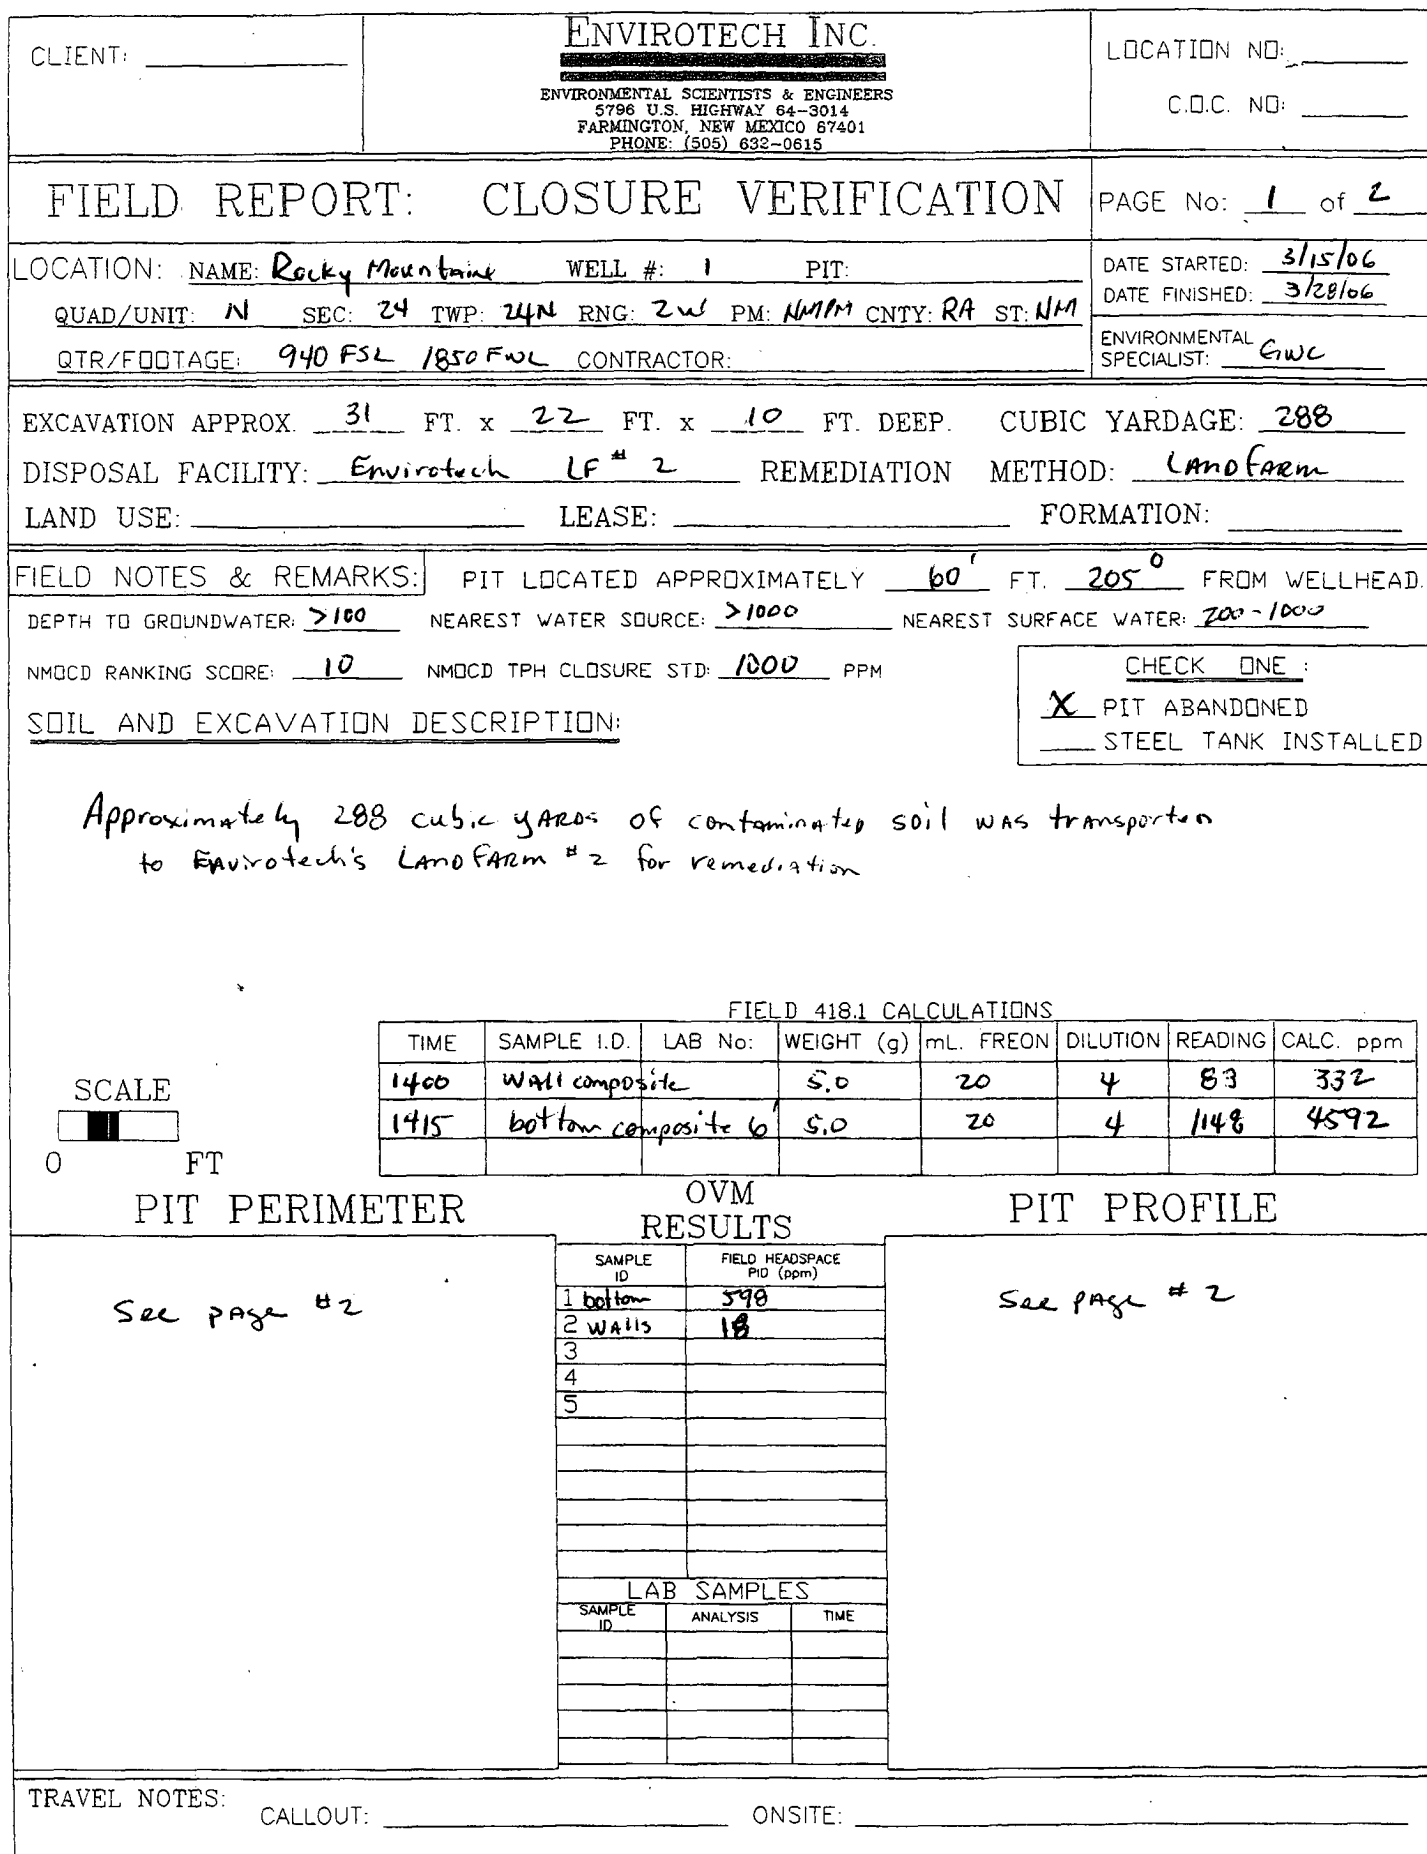 CLIENT:
ENVIROTECH INC.
ENVIRONMENTAL SCIENTISTS & ENGINEERS
5796 U.S. HIGHWAY 64-3014
FARMINGTON, NEW MEXICO 87401
PHONE: (505) 632-0615
LOCATION NO:
C.O.C. NO:
FIELD REPORT: CLOSURE VERIFICATION
PAGE No: 1 of 2
LOCATION: NAME: Rocky Mountain WELL #: 1 PIT:
QUAD/UNIT: N SEC: 24 TWP: 24N RNG: 2W PM: NMPM CNTY: RA ST: NM
QTR/FOOTAGE: 940 FSL 1850 FWL CONTRACTOR:
DATE STARTED: 3/15/06
DATE FINISHED: 3/28/06
ENVIRONMENTAL
SPECIALIST: GWC
EXCAVATION APPROX. 31 FT. x 22 FT. x 10 FT. DEEP. CUBIC YARDAGE: 288
DISPOSAL FACILITY: Envirotech LF # 2 REMEDIATION METHOD: LANDFARM
LAND USE: LEASE: FORMATION:
FIELD NOTES & REMARKS: PIT LOCATED APPROXIMATELY 60' FT. 205° FROM WELLHEAD.
DEPTH TO GROUNDWATER: >100 NEAREST WATER SOURCE: >1000 NEAREST SURFACE WATER: 200-1000
NMOCD RANKING SCORE: 10 NMOCD TPH CLOSURE STD: 1000 PPM
CHECK ONE :
X PIT ABANDONED
STEEL TANK INSTALLED
SOIL AND EXCAVATION DESCRIPTION:
Approximately 288 cubic yARDS of contaminated soil wAs transported
to Envirotech's LANDFARM # 2 for remediation
FIELD 418.1 CALCULATIONS
TIME SAMPLE I.D. LAB No: WEIGHT (g) mL. FREON DILUTION READING CALC. ppm
1400 Wall composite 5.0 20 4 83 332
1415 bottom composite 6' 5.0 20 4 1148 4592
SCALE
0 FT
PIT PERIMETER
OVM
RESULTS
PIT PROFILE
SAMPLE
ID
FIELD HEADSPACE
PID (ppm)
1 bottom 598
2 WAlls 18
3
4
5
See pAge #2
See pAge # 2
LAB SAMPLES
SAMPLE
ID
ANALYSIS
TIME
TRAVEL NOTES:
CALLOUT: ONSITE: